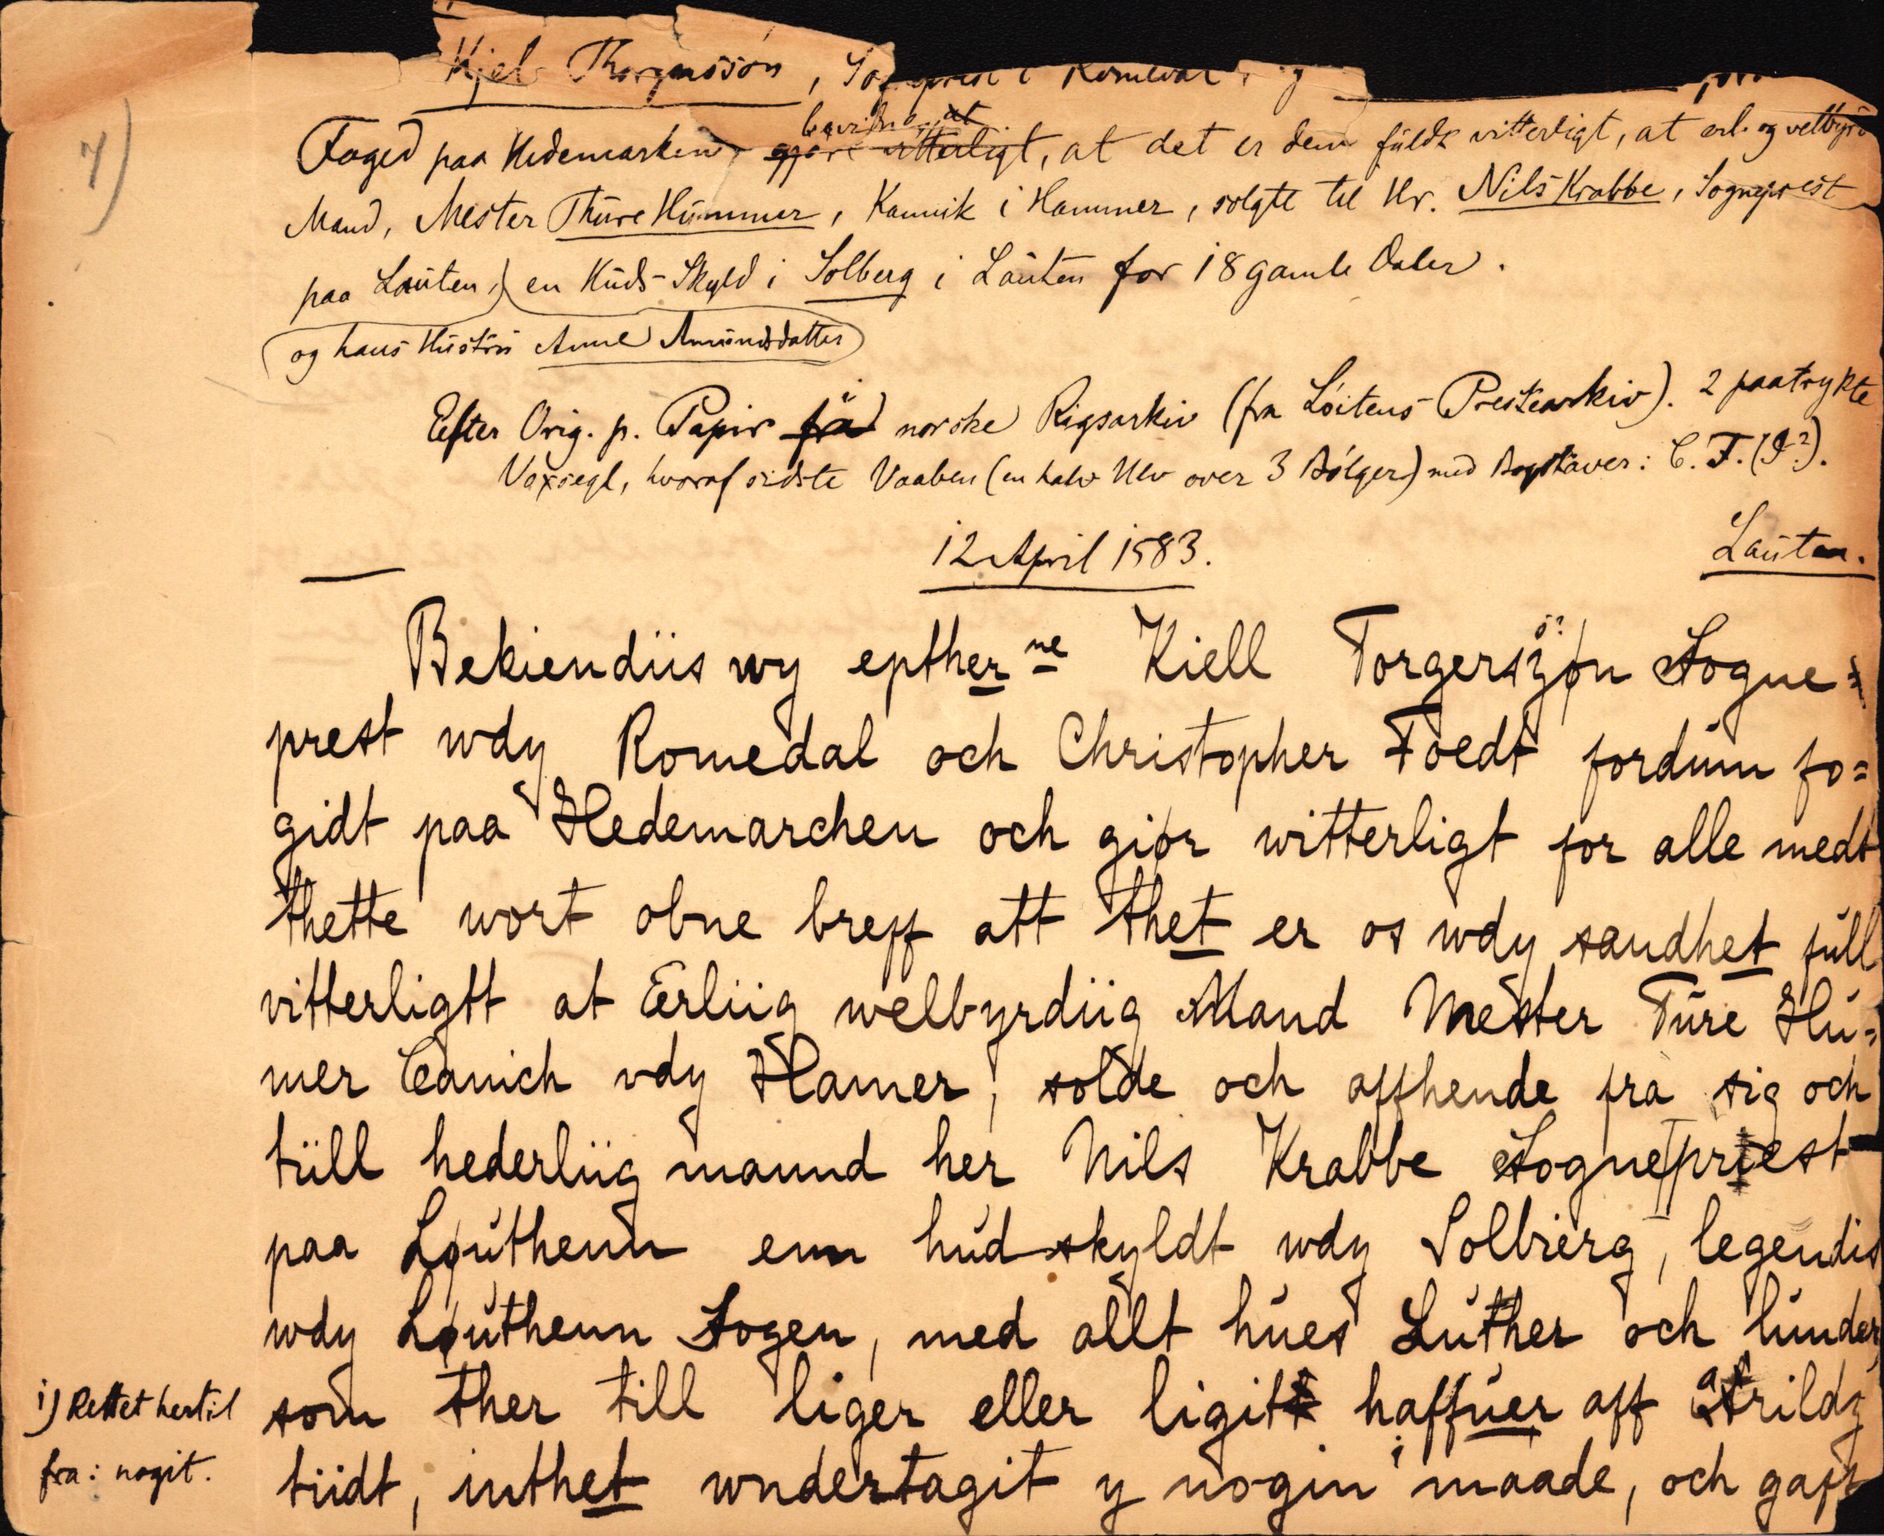 Kjel Thorgerssøn, Sogneprest i Romedal, og
7)
bevidne at
Foged paa Hedemarken, gjøre vitterligt, at det er dem fuldt vitterligt, at erl. og velbyrd.
Mand, Mester Thure Hummer, Kannik i Hammer, solgte til Hr. Nils Krabbe, Sogneprest
paa Lauten, en Huds-Skyld i Solberg i Lauten for 18 gamle Daler.
og hans Hustru Anne Amundsdatter
Efter Orig. p. Papir fra norske Rigsarkiv (fra Løitens Prestearkiv). 2 paatrykte
Voxsegl, hvoraf sidste Vaaben (en halv Ulv over 3 Bølger) med Bogstaver: C. F. (I?).
12 April 1583.
Lauten.
Bekiendiis wy epther ne Kiell Torgerszøn Sogne=
ö?
prest wdy Romedal och Christopher Foedt fordum fo=
gidt paa Hedemarchen och giør witterligt for alle medt
thette wort obne breff att thet er os wdy sandhet full
vitterligtt at Erliig welbyrdiig Mand Mester Ture Hu=
mer Canich vdy Hamer, solde och affhende fra sig och
tiill hederliig maund her Nils Krabbe Sognepriest
paa Løuthenn enn hud skyldt wdy Solbierg, legendis
wdy Løuthenn Sogen, med allt hues Luther och lunder,
som ther till liger eller ligitt haffuer aff arildz
tiidt, inthet wndertagit y nogin ¹ maade, och gaff
1) Rettet hertil
fra: nogit.